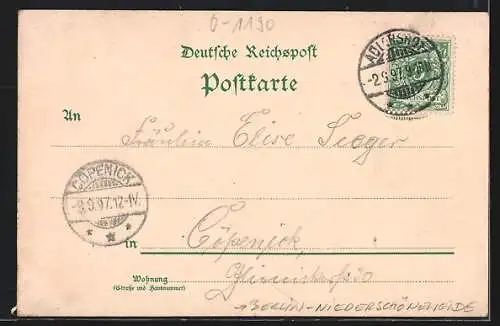 O-1190
Deutsche Reichspost
Postkarte
ADLERSHOF
-2.9.97.
An
Fräulein Elise Seeger
CÖPENICK
-3.9.97.12-1V.
in Cöpenick,
Wohnung
(Straße und Hausnummer)
→BERLIN-NIEDERSCHÖNEWEIDE